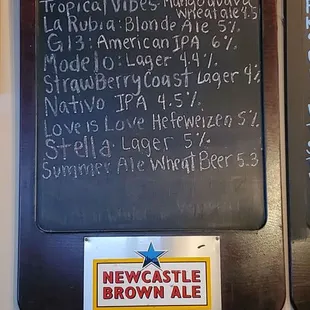 Tropical Vibes: Mango Guava
Wheat ale 4.5
La Rubia: Blonde Ale 5%
G13: American IPA 6%
Modelo: Lager 4.4%
StrawBerry Coast Lager 4%
Nativo IPA 4.5%
Love is Love Hefeweizen 5%
Stella Lager 5%
Summer Ale Wheat Beer 5.3
NEWCASTLE
BROWN ALE